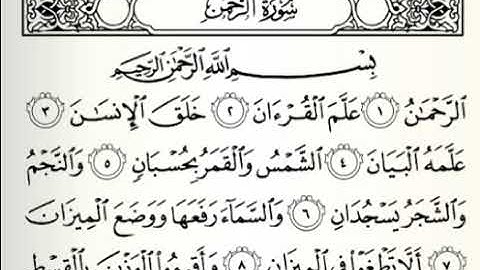 سُورَةُ الرَّحْمٰن
بِسْمِ اللَّهِ الرَّحْمَٰنِ الرَّحِيمِ
الرَّحْمَـٰنُ ١ عَلَّمَ الْقُرْءَانَ ٢ خَلَقَ الْإِنسَـٰنَ ٣
عَلَّمَهُ الْبَيَانَ ٤ الشَّمْسُ وَالْقَمَرُ بِحُسْبَانٍ ٥ وَالنَّجْمُ
وَالشَّجَرُ يَسْجُدَانِ ٦ وَالسَّمَآءَ رَفَعَهَا وَوَضَعَ الْمِيزَانَ
٧ أَلَّا تَطْغَوْا فِي الْمِيزَانِ ٨ وَأَقِيمُوا الْوَزْنَ بِالْقِسْطِ